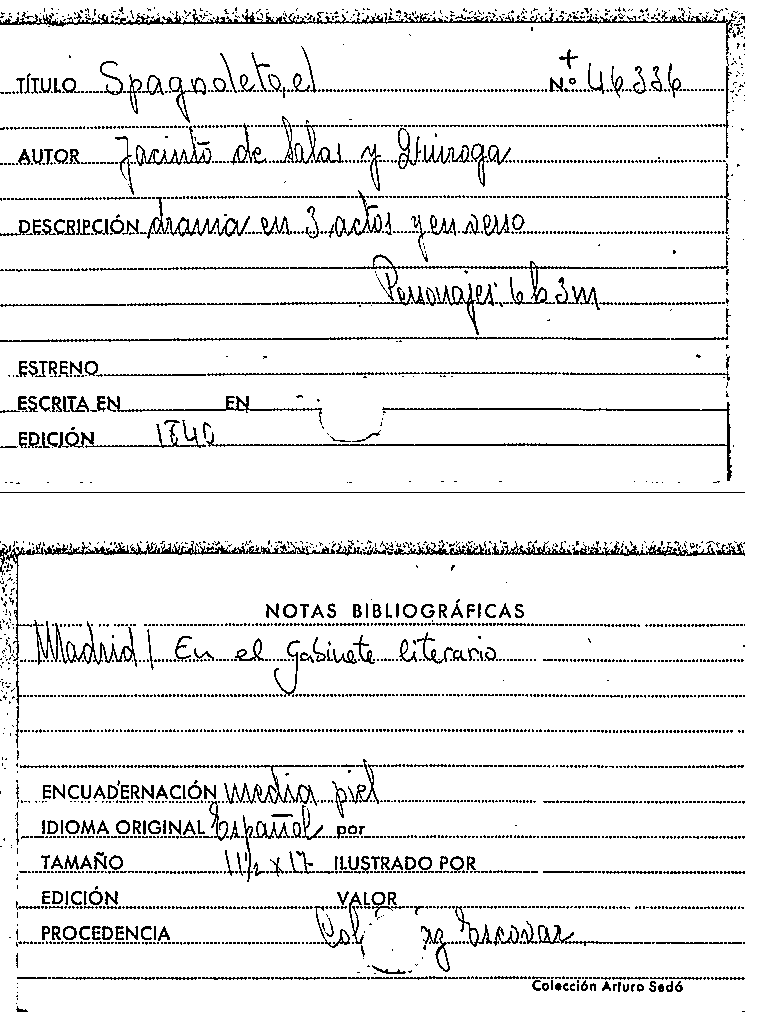 TÍTULO Spagnoleto, el + N.º 46336
AUTOR Jacinto de Salas y Quiroga
DESCRIPCIÓN drama en 3 actos y en verso
Personajes: 6 h 3 m
ESTRENO
ESCRITA EN EN
EDICIÓN 1840
NOTAS BIBLIOGRÁFICAS
Madrid / En el Gabinete literario
ENCUADERNACIÓN media piel
IDIOMA ORIGINAL Español por
TAMAÑO 11½ x 17 ILUSTRADO POR
EDICIÓN VALOR
PROCEDENCIA Col Escovar
Colección Arturo Sedó